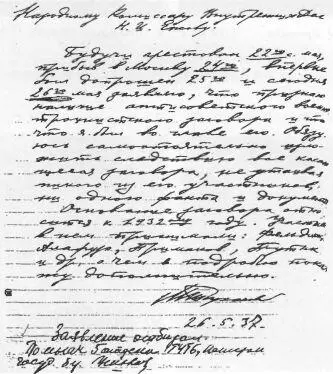 Народному Комиссару Внутренних Дел
Н. И. Ежову.
Будучи арестован 22го мая,
прибыв в Москву 24го, впервые
был допрошен 25го и сегодня
26го мая заявляю, что признаю
наличие антисоветского военно-
троцкистского заговора и то,
что я был во главе его. Обязу-
юсь самостоятельно изло-
жить следствию все каса-
ющееся заговора, не утаивая
никого из его участников,
ни одного факта и документа.
Основание заговора отно-
сится к 1932му году. Участие
в нем принимали: Фельдман,
Алафузо, Примаков, Путна
и др., о чем я подробно пока-
жу дополнительно.
Тухачевский
26.5.37.
Заявление отобрал:
Пом. нач. 5 отдела ГУГБ, капитан
госуд. без.